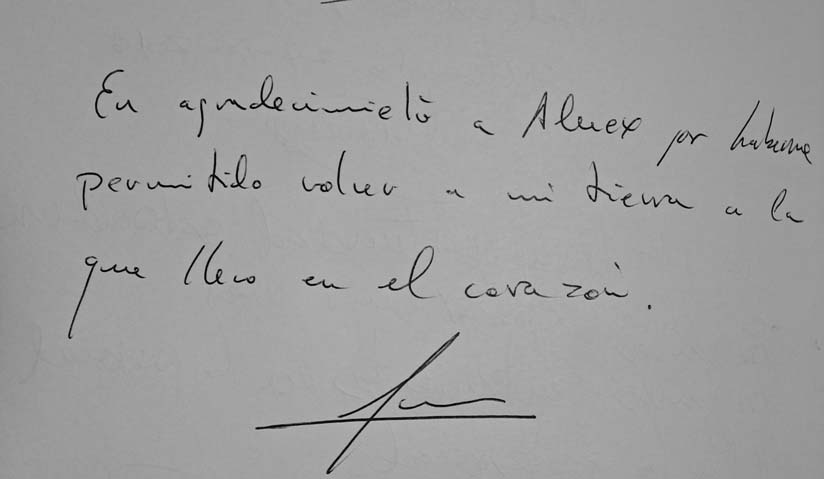 En agradecimieto a Aluex por haberme
permitido volver a mi tierra a la
que llevo en el corazón.